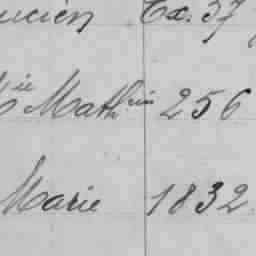 ucien Ex. 37
Mie Mathrin 256
Marie 1832